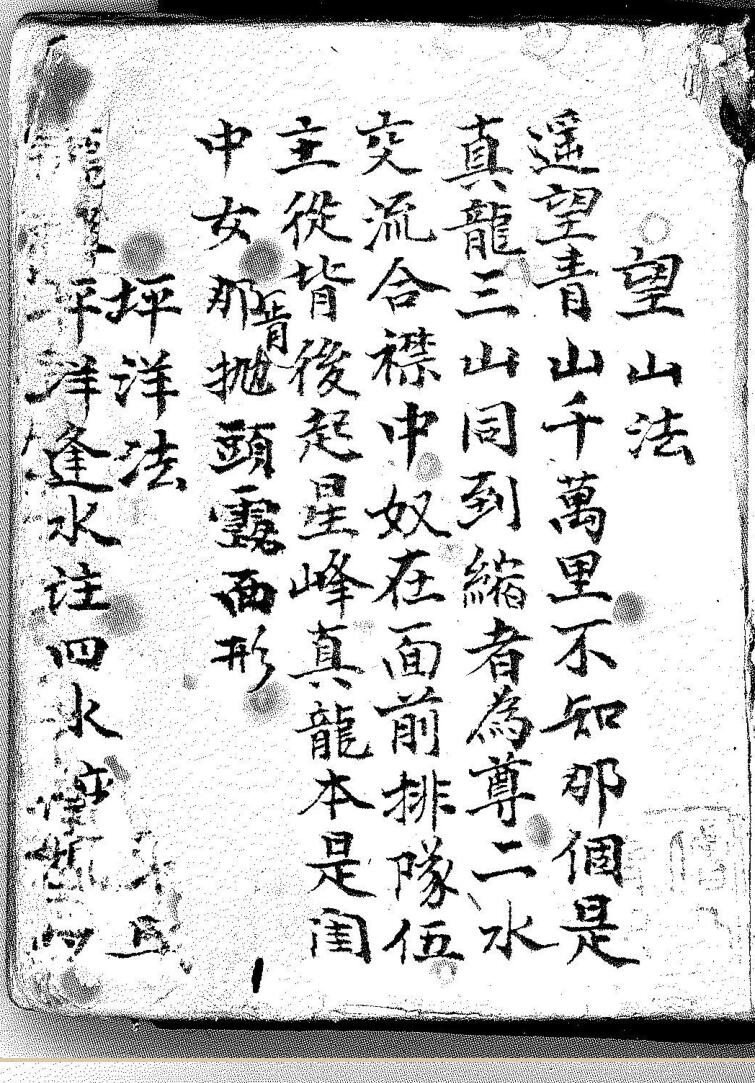 望山法
遥望青山千萬里不知那個是
真龍三山同到縮者為尊二水
交流合襟中奴在面前排隊伍
主從背後起星峰真龍本是闺
中女那肯拋頭露面形
坪洋法
坪洋逢水註四水